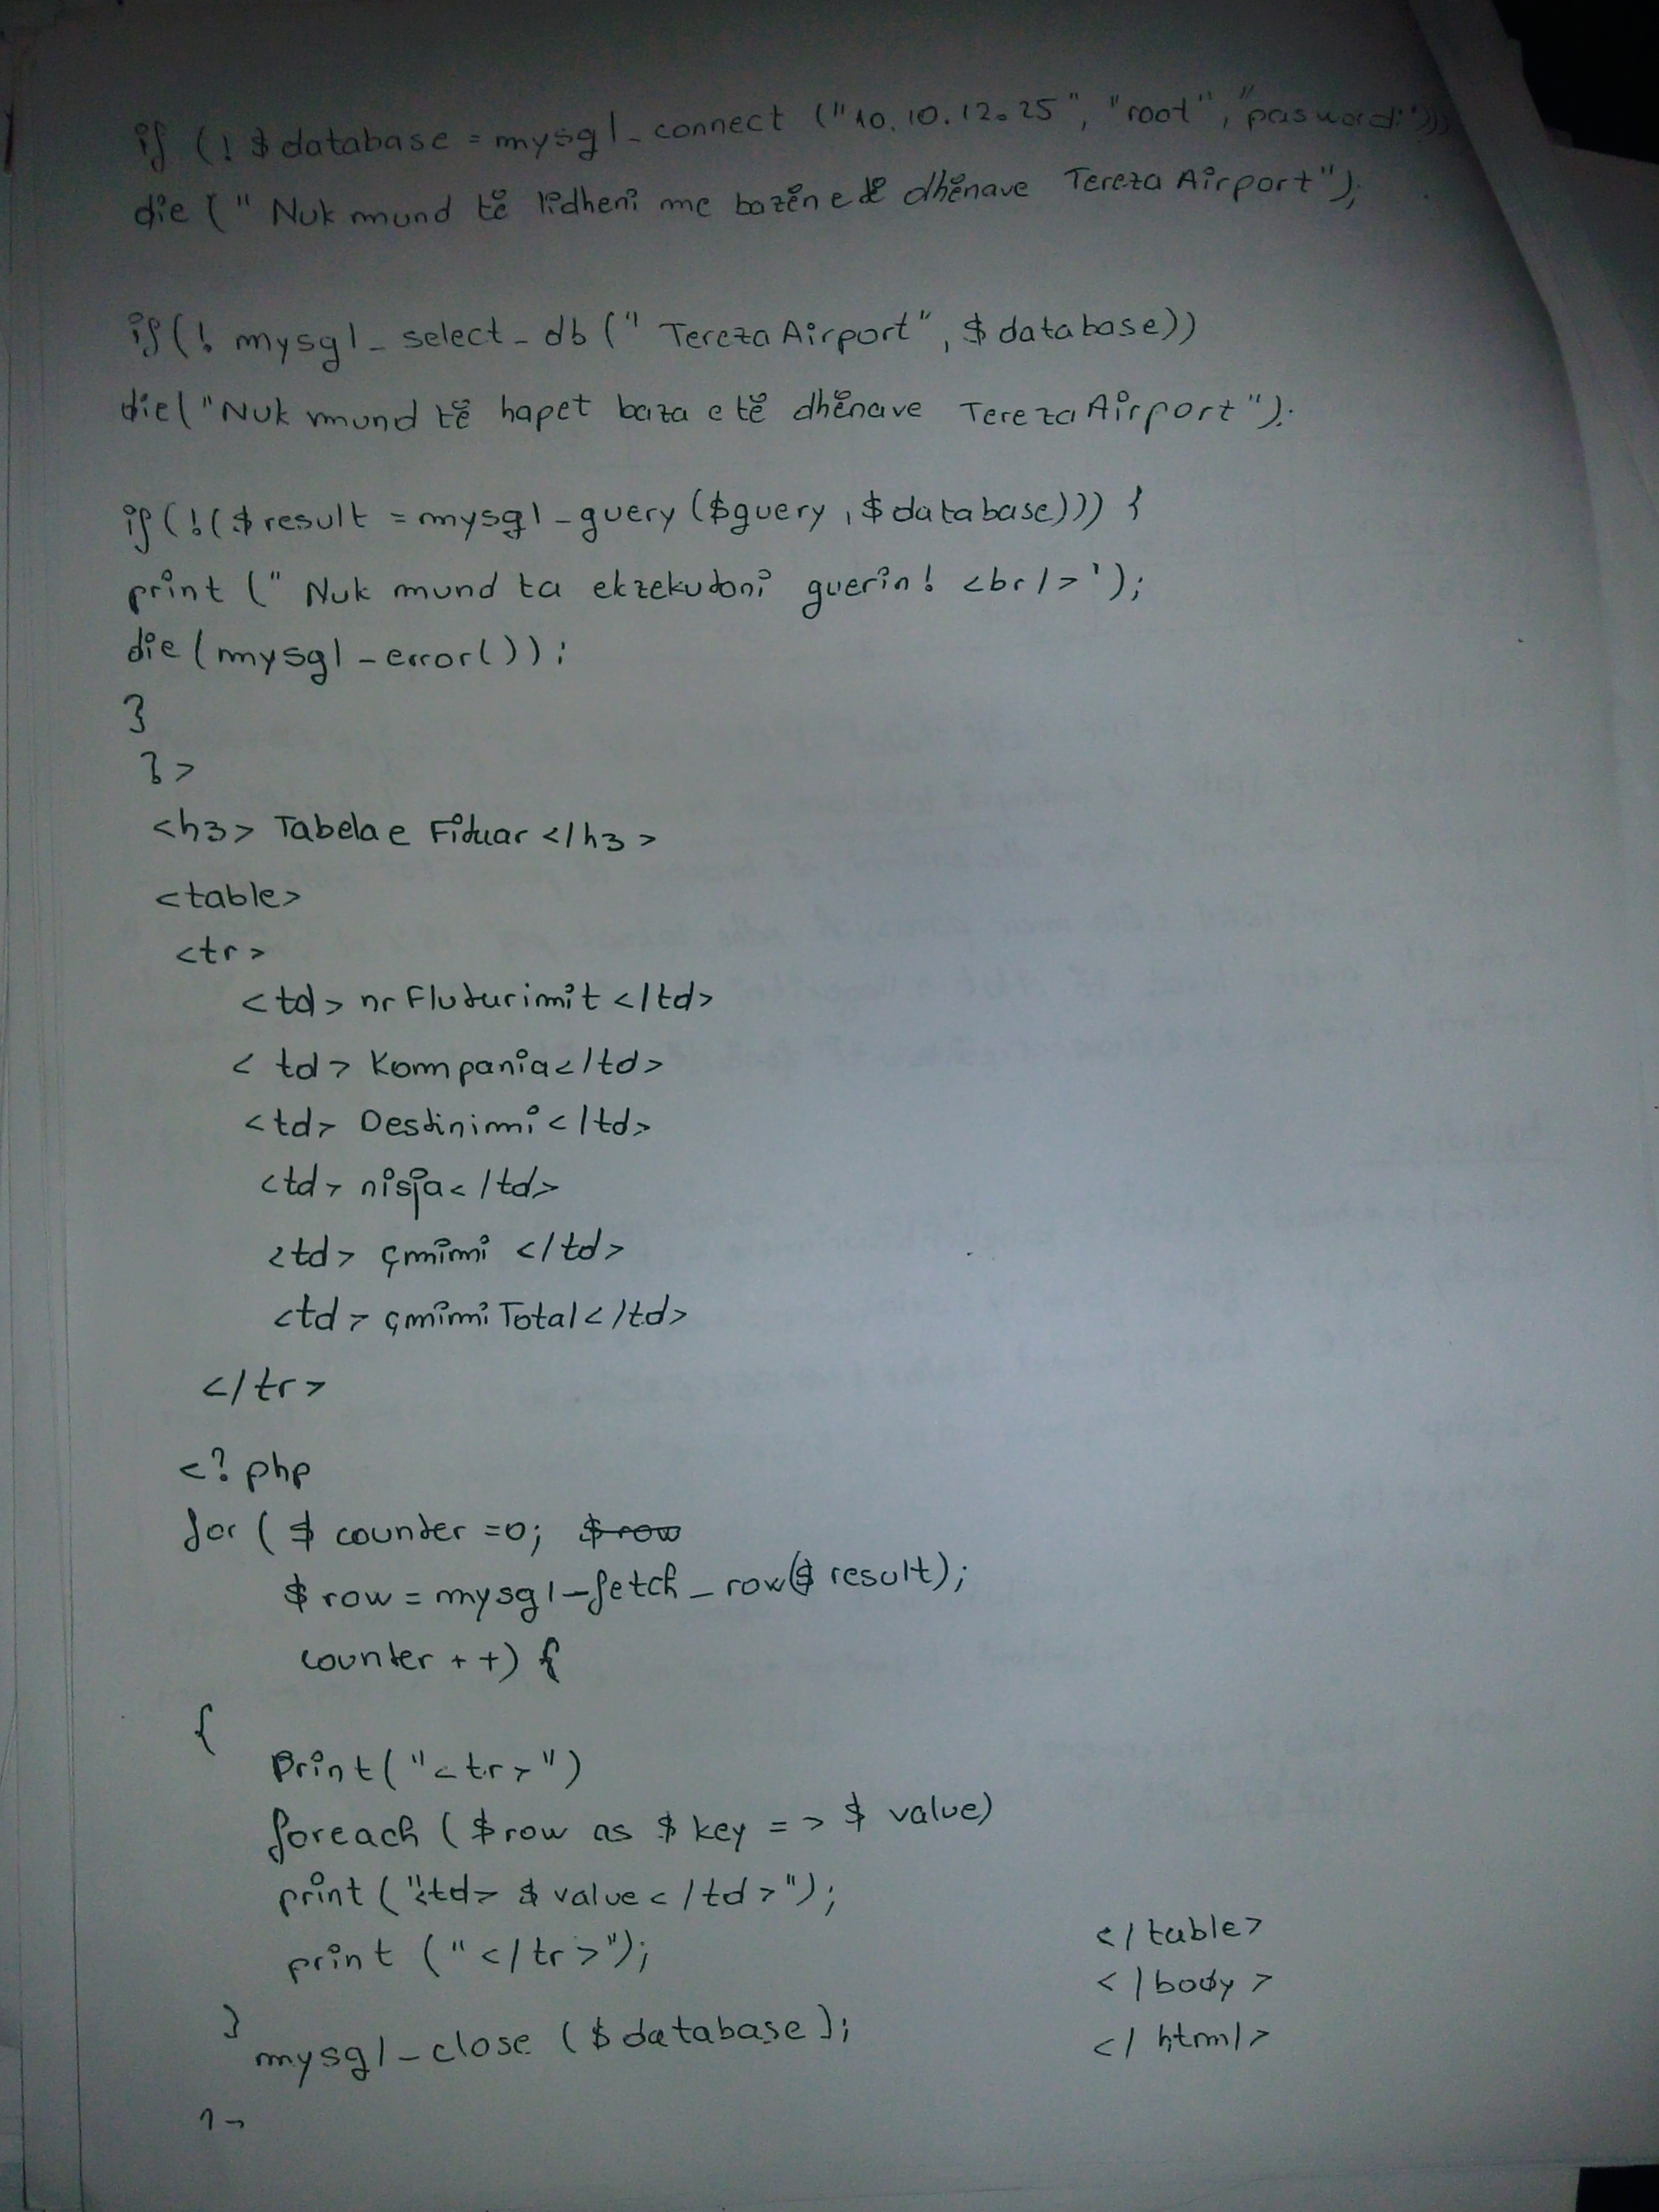 if (! $ database = mysql_connect ("10.10.12.25", "root", "pasword")))
die (" Nuk mund të lidheni me bazën e të dhënave Tereza Airport");
if(! mysql_select_db (" Tereza Airport", $ database))
die("Nuk mund të hapet baza e të dhënave Tereza Airport");
if(!($result = mysql_query ($query, $database))) {
print (" Nuk mund ta ekzekutoni querin! <br/>');
die (mysql_error());
}
?>
<h3> Tabela e Fituar </h3>
<table>
<tr>
<td> nr Fluturimit </td>
<td> Kompania</td>
<td> Destinimi </td>
<td> nisja</td>
<td> çmimi </td>
<td> çmimi Total</td>
</tr>
<?php
for ( $ counter =0; $row
$ row = mysql_fetch_row($ result);
counter ++) {
{
Print("<tr>")
foreach ($row as $ key => $ value)
print ("<td> $ value</td>");
print ("</tr>");
}
mysql_close ($database);
?>
</table>
</body>
</html>